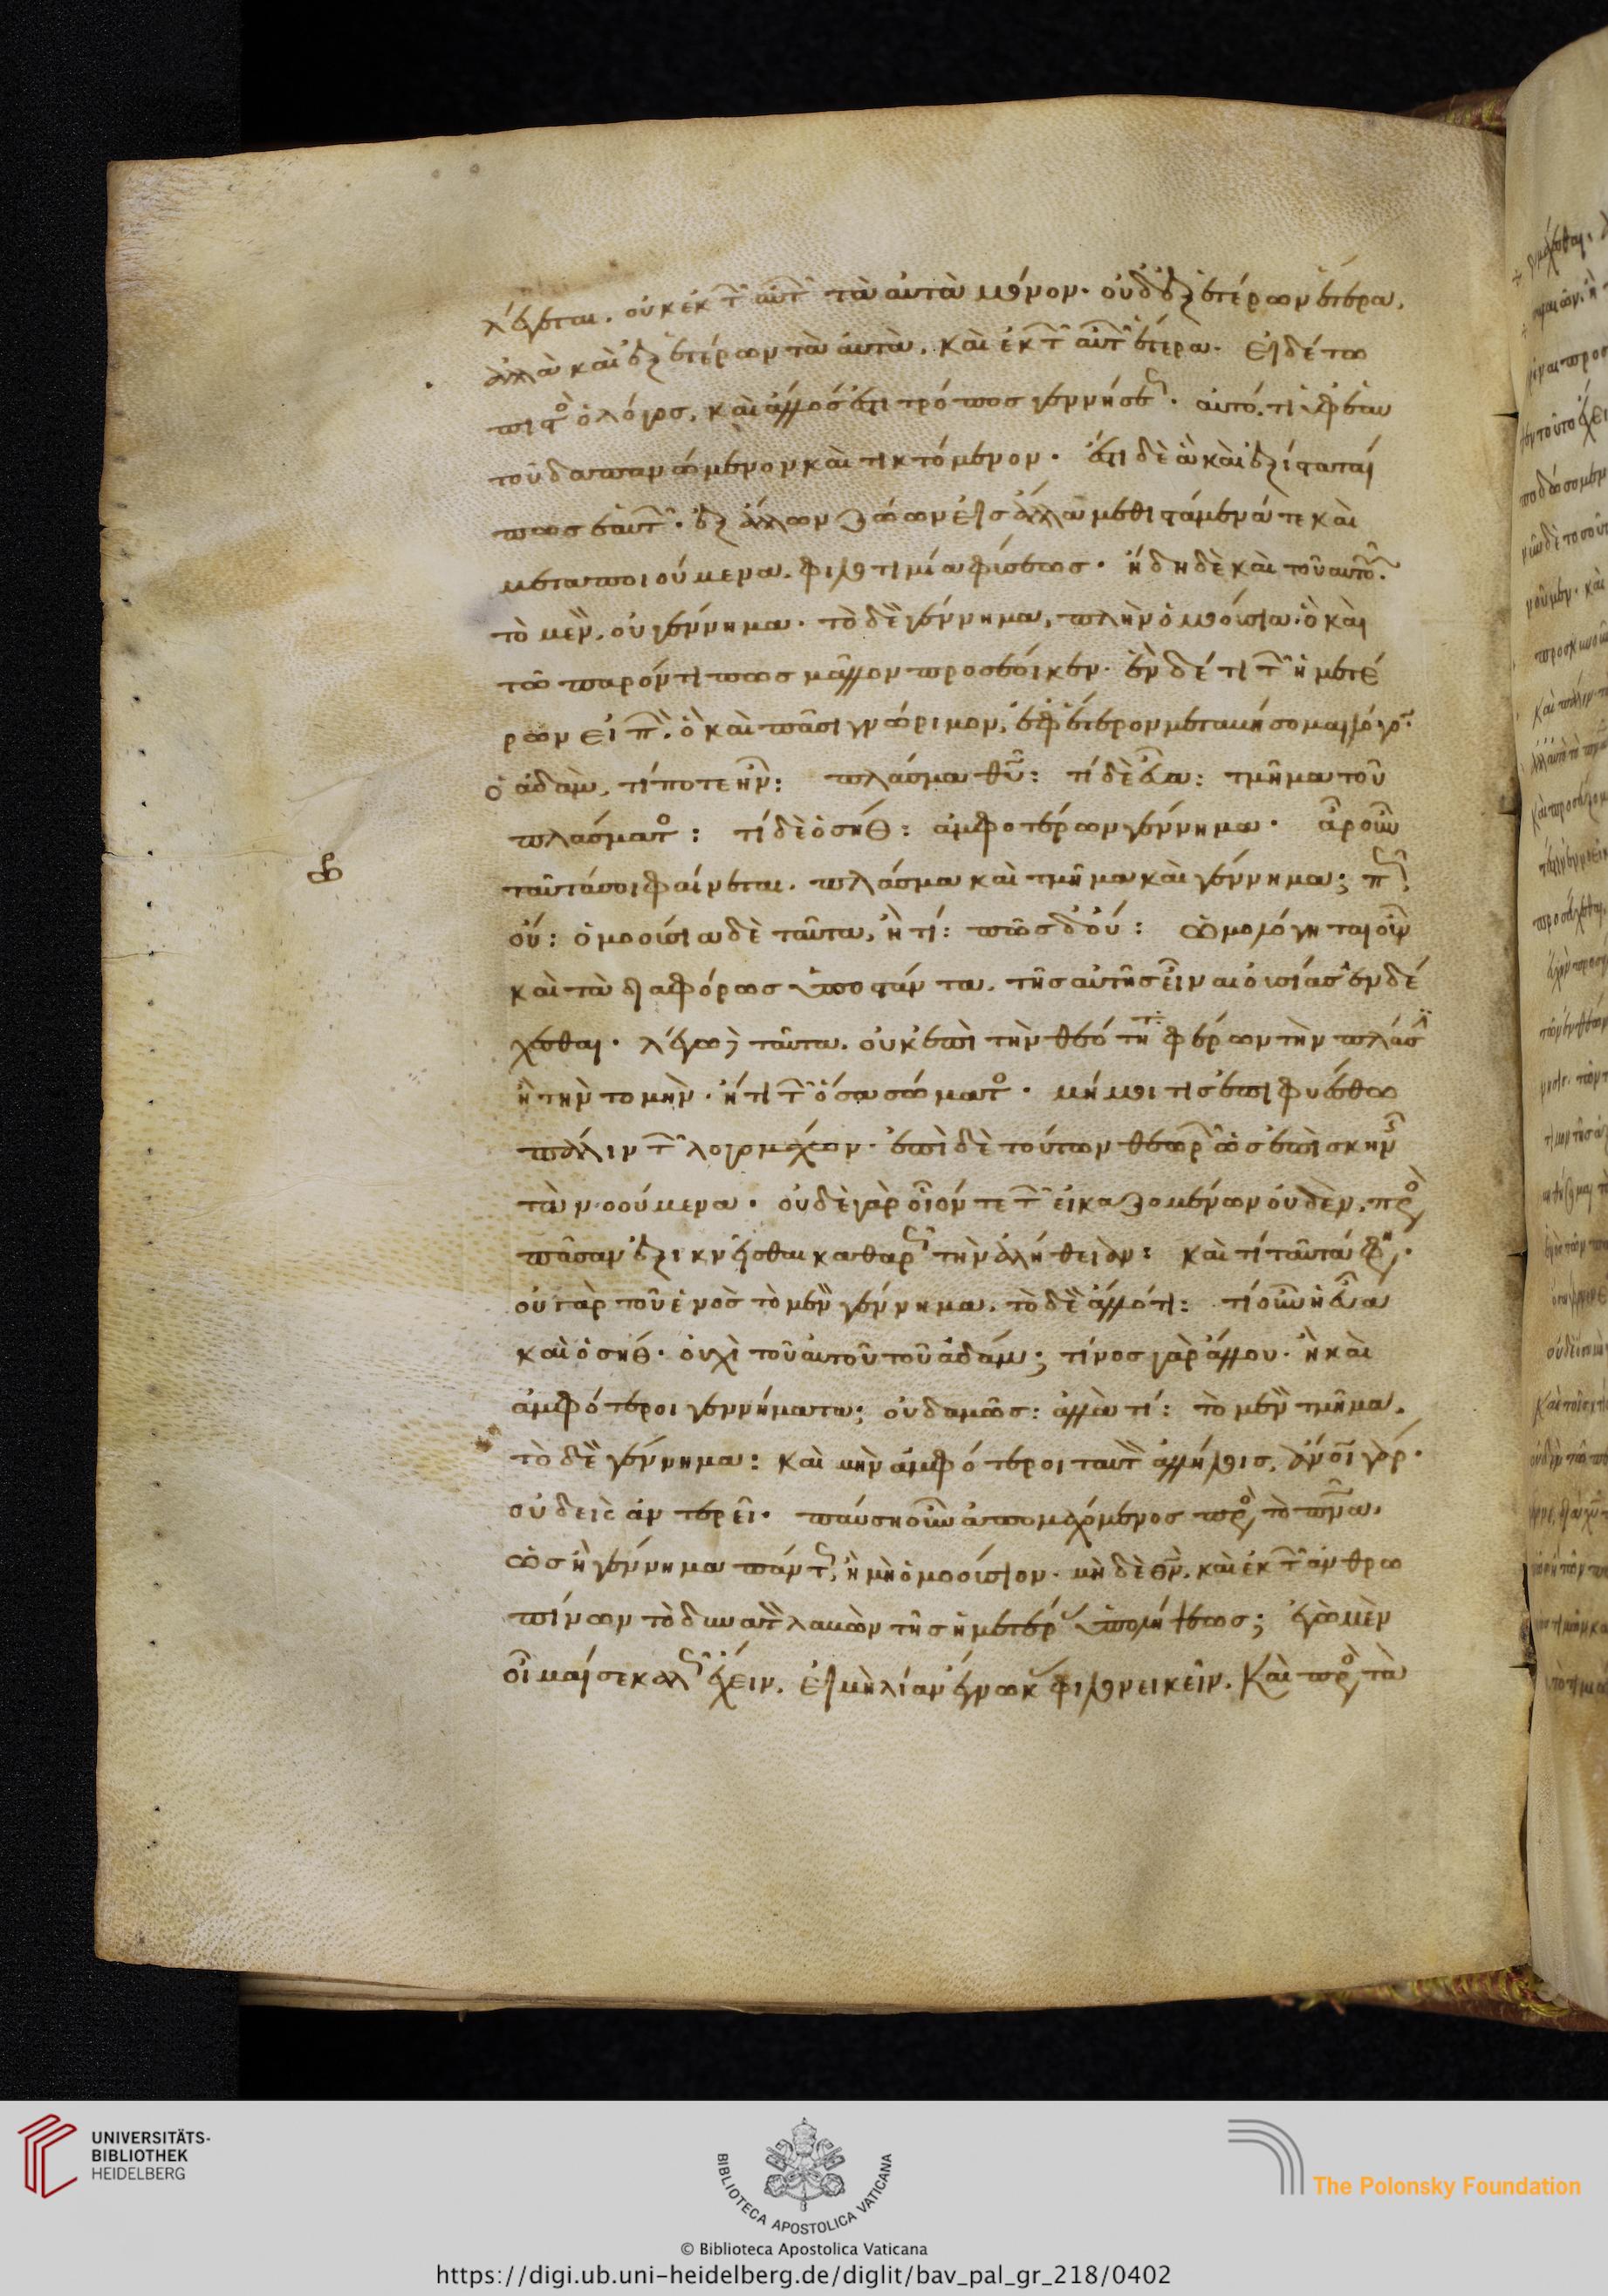 λέγεται. οὐκ ἐκ τῶν αὐτῶν τὰ αὐτὰ μόνον. οὐδ' ἐξ ἑτέρων ἕτερα.
ἀλλὰ καὶ ἐξ ἑτέρων τὰ αὐτὰ. καὶ ἐκ τῶν αὐτῶν ἕτερα. εἰ δέ τω
πιστὸς ὁ λόγος. καὶ ἄλλος ἐστι τρόπος γεννήσεως. αὐτό τι ὑφ' ἑαυ
τοῦ δαπανώμενον καὶ τικτόμενον. ἔστι δὲ ἃ καὶ ἐξίσταταί
πως ἑαυτῶν. ἐξ ἄλλων ζώων εἰς ἄλλα μεθιστάμενά τε καὶ
μεταποιούμενα. φιλοτιμία φύσεως. ἤδη δὲ καὶ τοῦ αὐτοῦ.
τὸ μὲν, οὐ γέννημα. τὸ δὲ γέννημα, πλὴν ὁμοούσια. ὃ καὶ
τῶ παρόντι πως μᾶλλον προσέοικεν. ἓν δέ τι τῶν ἡμετέ
ρων εἰπὼν. ὃ καὶ πᾶσι γνώριμον, ἐφ' ἕτερον μεταβήσομαι λόγον.
ὁ ἀδὰμ, τί ποτε ἦν: πλάσμα θῦ: τί δὲ εὔα: τμῆμα τοῦ
πλάσματος: τί δὲ ὁ σήθ: ἀμφοτέρων γέννημα. ἆρ οὖν
ταὐτό σοι φαίνεται. πλάσμα καὶ τμῆμα καὶ γέννημα; πῶς
οὔ: ὁμοούσια δὲ ταῦτα, ἢ τί: πῶς δ' οὔ: ὡμολόγηται οὖν
καὶ τὰ διαφόρως ὑποστάντα. τῆς αὐτῆς εἶναι οὐσίας ἐνδέ
χεσθαι. λέγω δὲ ταῦτα. οὐκ ἐπὶ τὴν θεότητα φέρων τὴν πλάσιν
ἢ τὴν τομὴν. ἤ τι τῶν ὅσα σώματος. μή μοι τις ἐπιφυέσθω
πάλιν τῶν λογομάχων. ἐπὶ δὲ τούτων θεωρῶν ὡς ἐπὶ σκηνῆς
τὰ νοούμενα. οὐδὲ γὰρ οἷόν τε τῶν εἰκαζομένων οὐδὲν, πρὸς
πᾶσαν ἐξικνεῖσθαι καθαρῶς τὴν ἀλήθειαν: καὶ τί ταῦτά φασιν.
οὐ γὰρ τοῦ ἑνὸς τὸ μὲν γέννημα. τὸ δὲ ἄλλό τι: τί οὖν ἡ εὔα
καὶ ὁ σήθ. οὐχὶ τοῦ αὐτοῦ τοῦ ἀδάμ; τίνος γὰρ ἄλλου. ἢ καὶ
ἀμφότεροι γεννήματα; οὐδαμῶς: ἀλλὰ τί: τὸ μὲν τμῆμα.
τὸ δὲ γέννημα: καὶ μὴν ἀμφότεροι ταὐτὸν ἀλλήλοις, ἄνοι γάρ.
οὐδεὶς ἀντερεῖ. παύση οὖν ἀπομαχόμενος πρὸς τὸ πνα.
ὡς ἢ γέννημα πάντως, ἢ μὴ ὁμοούσιον. μὴ δὲ θν. καὶ ἐκ τῶν ἀνθρω
πίνων τὸ δυνατὸν λαβὼν τῆς ἡμετέρας ὑπολήψεως; ἐγὼ μὲν
οἶμαί σε καλῶς ἔχειν. εἰ μὴ λίαν ἔγνωκας φιλονεικεῖν. καὶ πρὸς τὰ
UNIVERSITÄTS-
BIBLIOTHEK
HEIDELBERG
BIBLIOTECA APOSTOLICA VATICANA
The Polonsky Foundation
© Biblioteca Apostolica Vaticana
https://digi.ub.uni-heidelberg.de/diglit/bav_pal_gr_218/0402